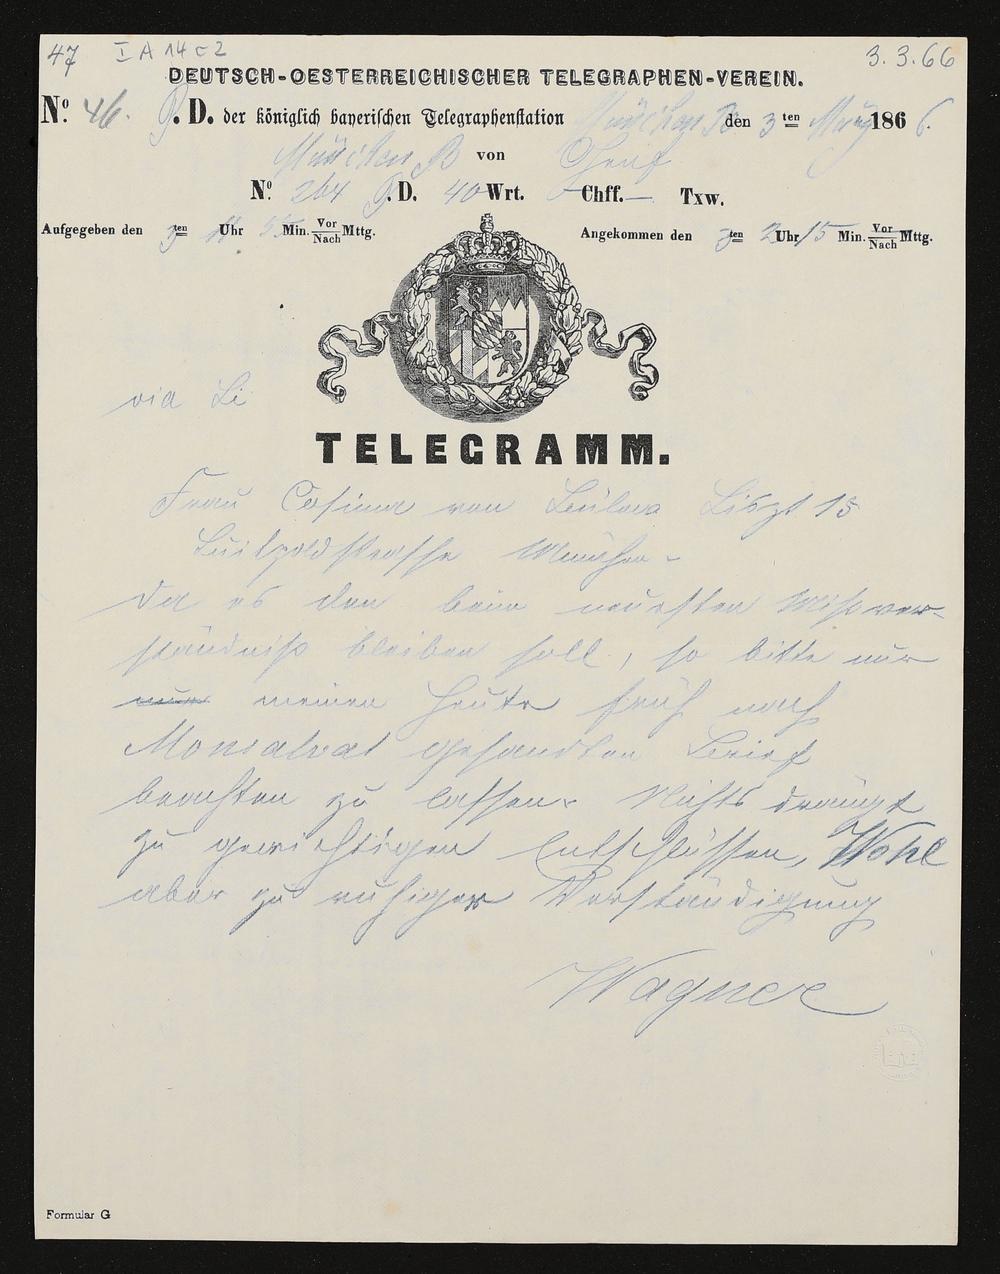 47 I A 14 c 2 3.3.66
DEUTSCH-OESTERREICHISCHER TELEGRAPHEN-VEREIN.
No. 46. P. D. der königlich bayerischen Telegraphenstation München B den 3ten März 1866.
München B von Genf
No. 264 P. D. 40 Wrt. — Chff. — Txw.
Aufgegeben den 3ten 11 Uhr 55 Min. Vor/Nach Mttg. Angekommen den 3ten 2 Uhr 15 Min. Vor/Nach Mttg.
via Li
TELEGRAMM.
Frau Cosima von Bülow Liszt 15
Luitpoldstrasse München -
Da es den beim neuesten Mißver-
ständniß bleiben soll, so bitte nur
nur meinen heute früh nach
Monsalvat gesandten Brief
beachten zu lassen. Nichts drängt
zu gewichtigen Entschlüssen, Wohl
aber zu ruhiger Verständigung
Wagner
Formular G